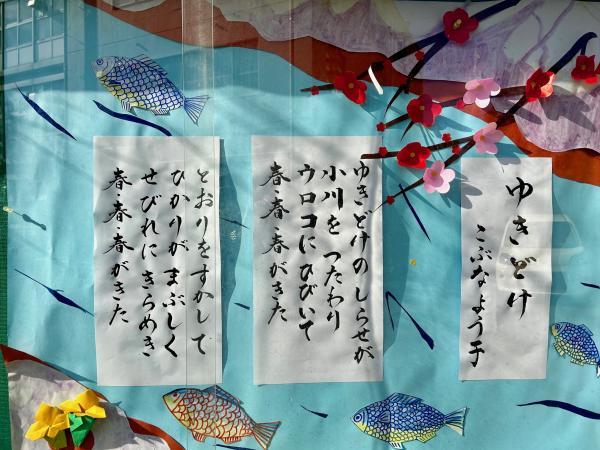 ゆきどけ
こぶなよう子
ゆきどけのしらせが
小川を つたわり
ウロコにひびいて
春・春・春がきた
とおりをすかして
ひかりが まぶしく
せびれに きらめき
春・春・春がきた